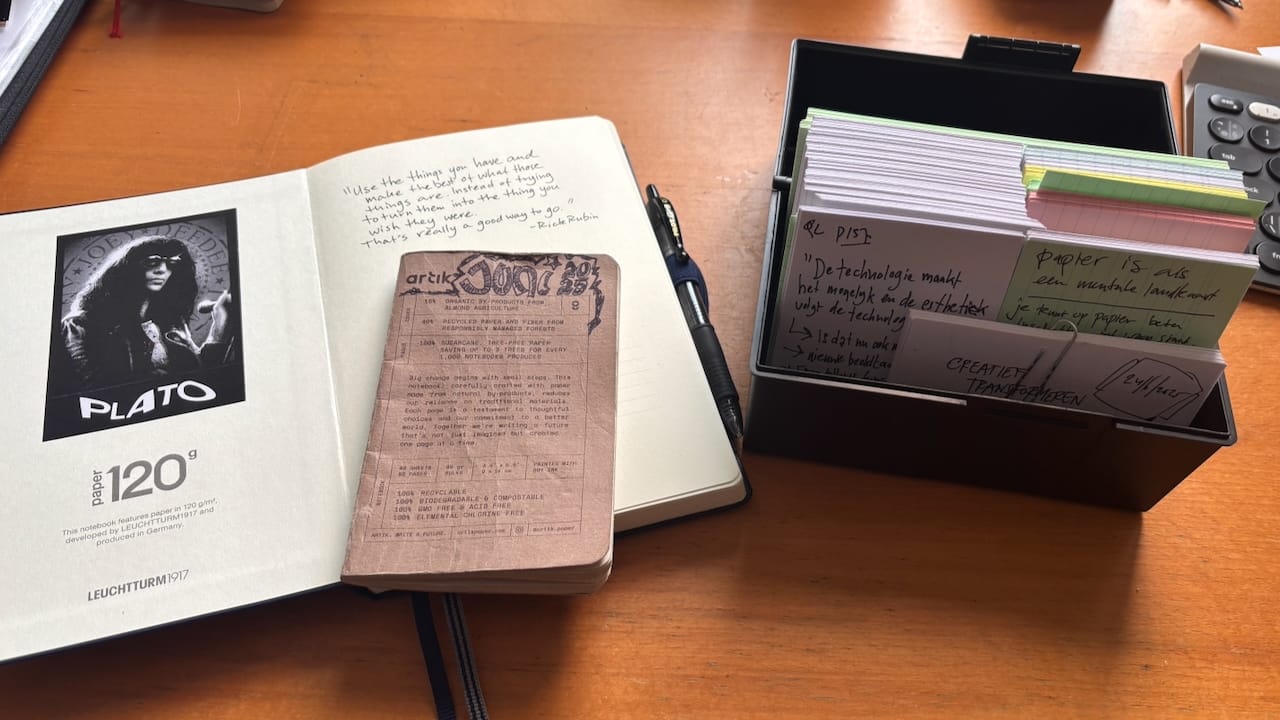 JOEY
DEEDEE
PLATO
paper 120g
This notebook features paper in 120 g/m²,
developed by LEUCHTTURM1917 and
produced in Germany.
LEUCHTTURM1917
"Use the things you have and
make the best of what those
things are. Instead of trying
to turn them into the thing you
wish they were.
That's really a good way to go."
-Rick Rubin
artik
2025
10% ORGANIC BY-PRODUCTS FROM
ALMOND AGRICULTURE
40% RECYCLED PAPER AND FIBER FROM
RESPONSIBLY MANAGED FORESTS
100% SUGARCANE, TREE-FREE PAPER
SAVING UP TO 3 TREES FOR EVERY
1,000 NOTEBOOKS PRODUCED
Big change begins with small steps. This
notebook, carefully crafted with paper
made from natural by-products, reduces
our reliance on traditional materials.
Each page is a testament to thoughtful
choices and our commitment to a better
world. Together we're writing a future
that's not just imagined but created
one page at a time.
PRINTED WITH
SOY INK
100% RECYCLABLE
100% BIODEGRADABLE & COMPOSTABLE
100% GMO FREE & ACID FREE
100% ELEMENTAL CHLORINE FREE
ARTIK. WRITE A FUTURE.
@artik.paper
"De technologie maakt
het mogelijk en de esthetiek
volgt de technolog
↳ is dat nu ook
→ nieuwe
papier is als
een mentale landkaart
je kunt op papier beter
CREATIEF
TRANSFORMEREN
24/1/2025
esc
tab